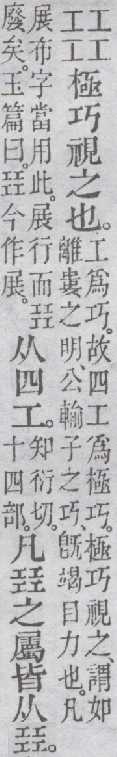 㠭極巧視之也。
工爲巧。故四工爲極巧。極巧視之謂如
離婁之明、公輸子之巧、旣竭目力也。凡
展布字當用此。展行而㠭
廢矣。玉篇曰。㠭今作展。
从四工。
知衍切。
十四部。
凡㠭之屬皆从㠭。